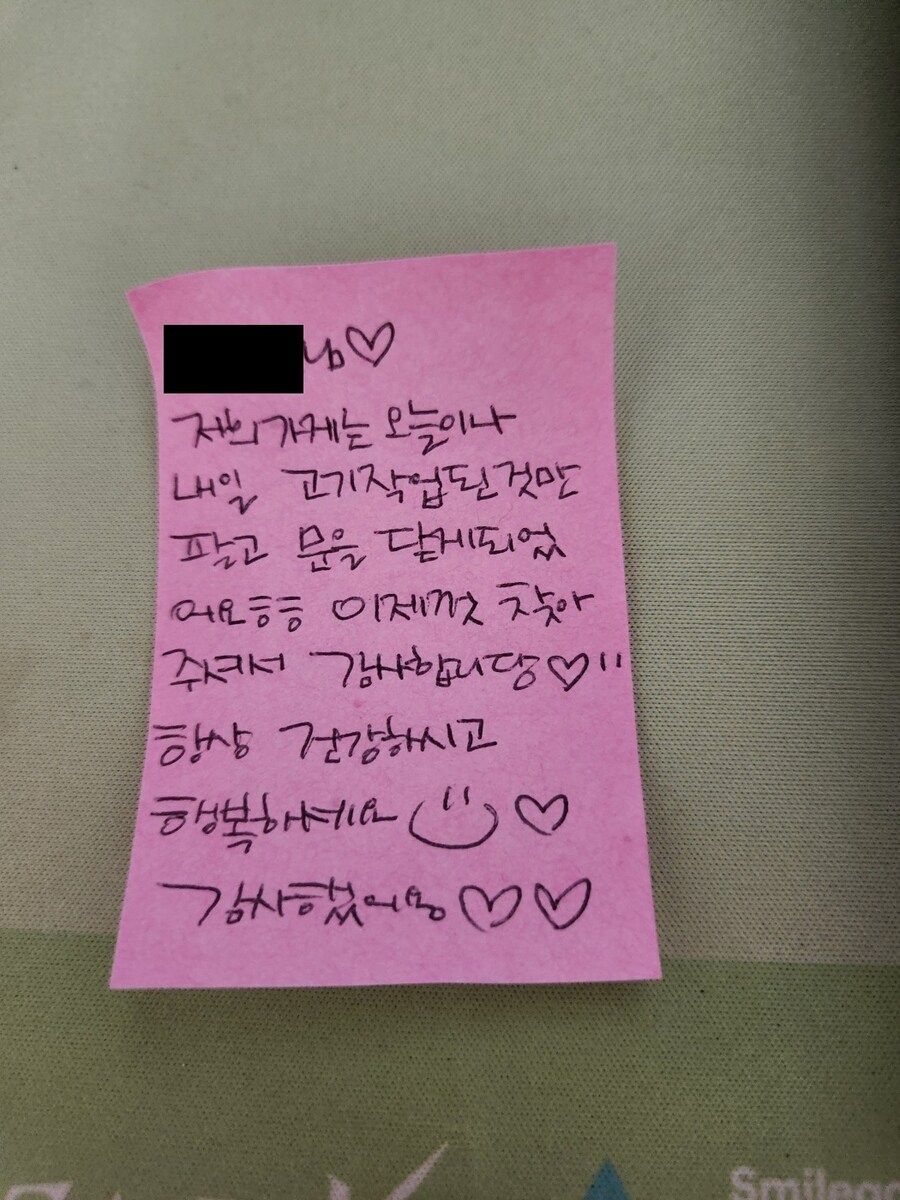 님♡
저희가게는 오늘이나
내일 고기작업된것만
팔고 문을 닫게되었
어요흐흐 이제껏 찾아
주셔서 감사합니당♡"
항상 건강하시고
행복하세요 ♡
감사했어용♡♡
Smilega